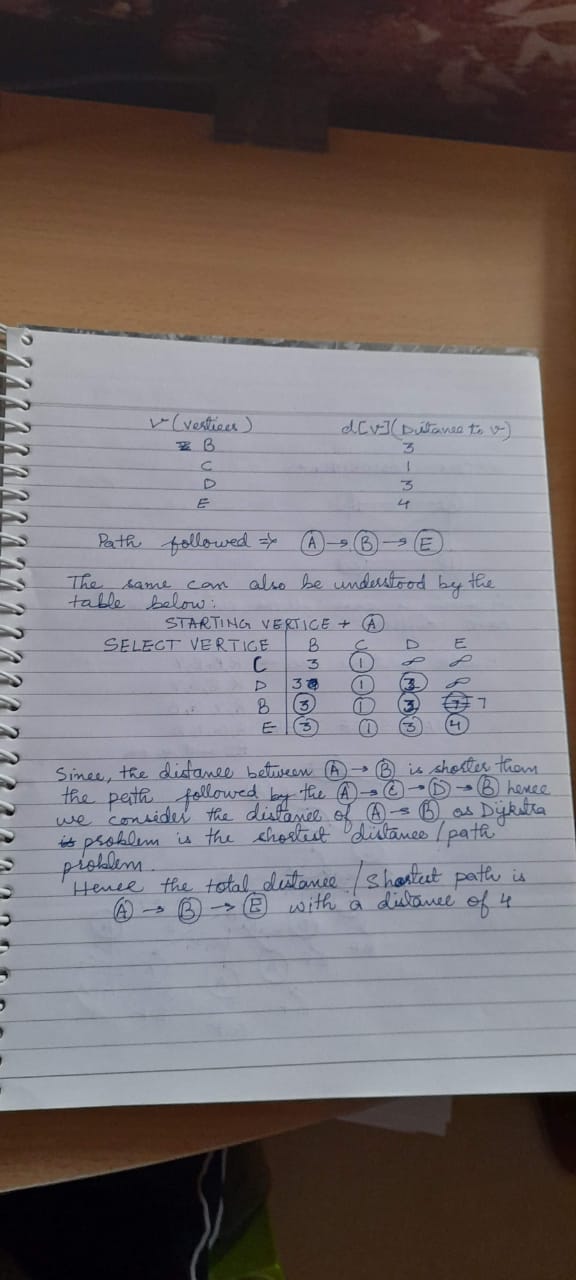 v (vertices) d[v] (Distance to v)
B 3
C 1
D 3
E 4
Path followed ⇒ A → B → E
The same can also be understood by the
table below:
STARTING VERTICE → A
SELECT VERTICE B C D E
C 3 1 ∞ ∞
D 3 1 3 ∞
B 3 1 3 7
E 3 1 3 4
Since, the distance between A → B is shorter than
the path followed by the A → C → D → B hence
we consider the distance of A → B as Dijkstra
problem is the shortest distance/path
problem.
Hence the total distance/Shortest path is
A → B → E with a distance of 4